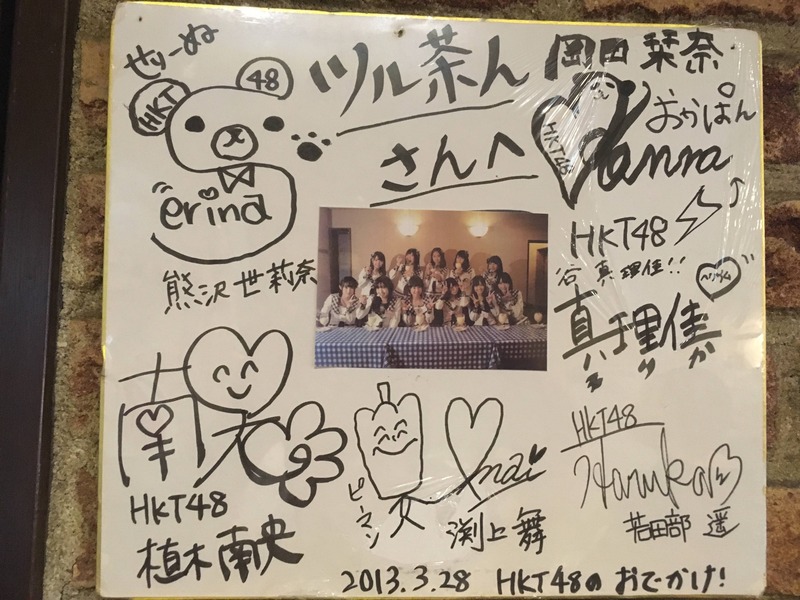 せりーぬ
HKT
48
erina
熊沢世莉奈
ツル茶ん
さんへ
岡田栞奈
おかぱん
HKT48
Kanna
HKT48
谷真理佳!!
真理佳
まりか
南央
HKT48
植木南央
ピーマン
mai
渕上舞
HKT48
Haruka
若田部遥
2013.3.28 HKT48のおでかけ!